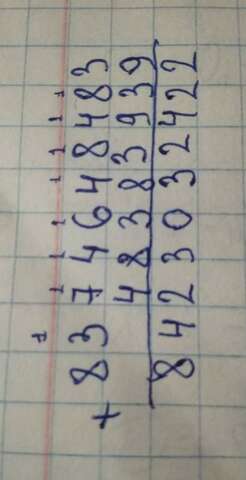 1 1 1 1 1 1 1 1
8374648483
+ 48383939
8423032422